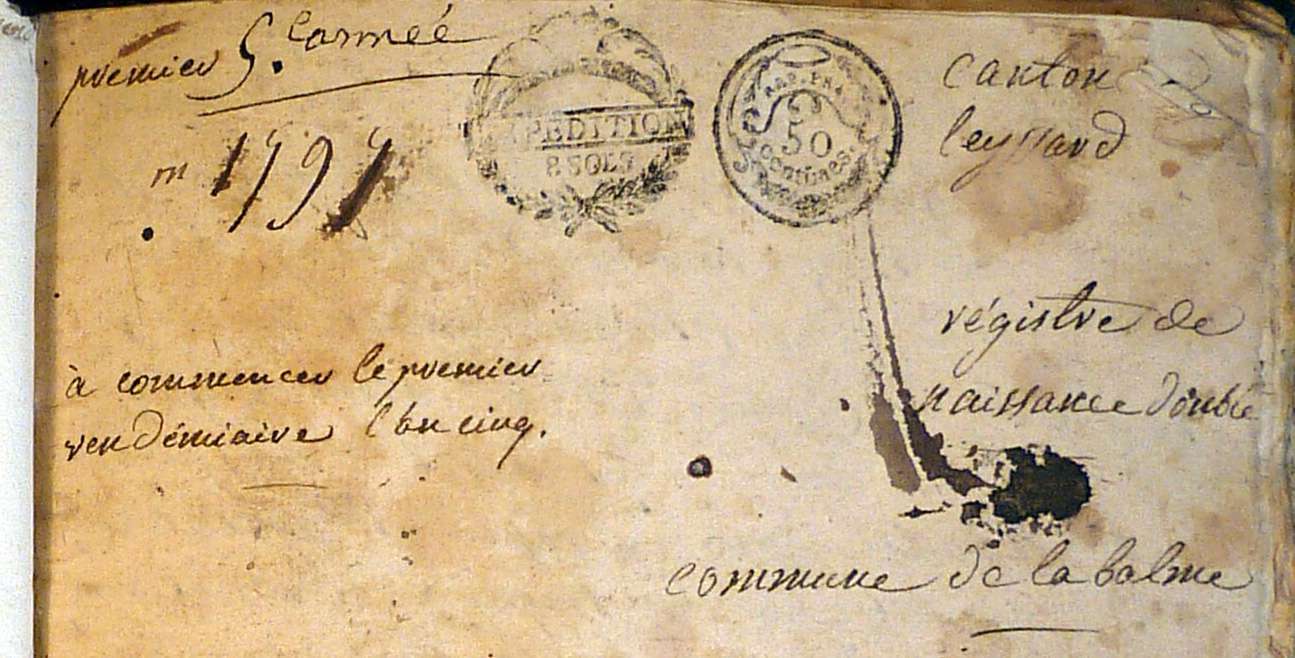 premier 5. l'année
m 1797
EXPEDITION
8 SOLS
REP. FRA.
50
centimes.
canton
leyssard
régistre de
naissance double
à commencer le premier
vendémiaire l'an cinq.
commune de la balme